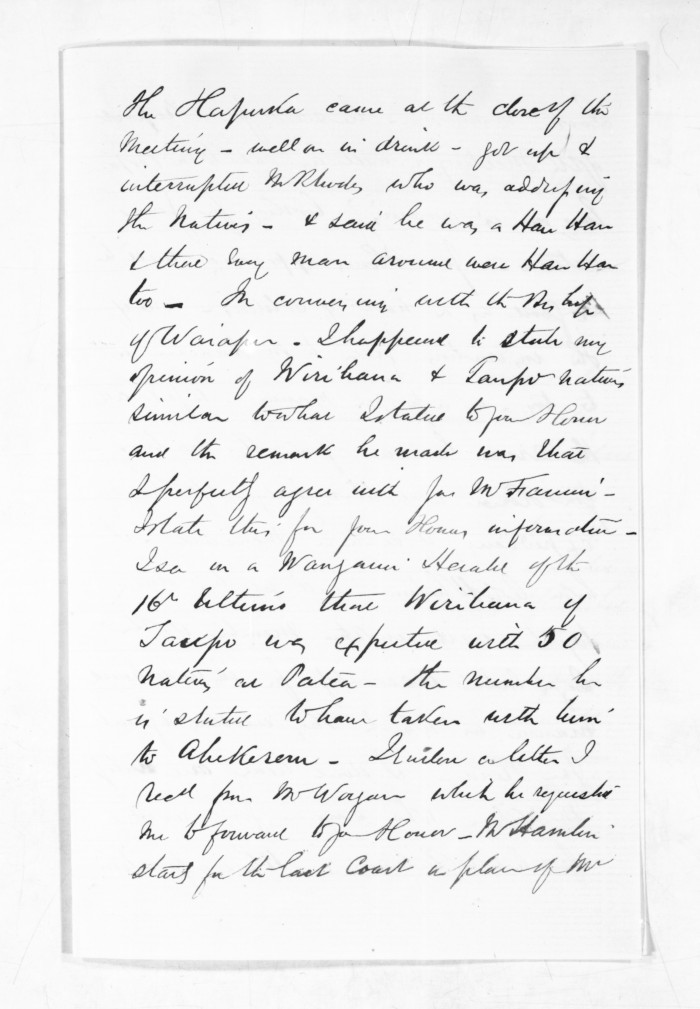 The Hapuka came at the close of the
Meeting - well on in drink - got up &
interrupted Mr Rhodes who was addressing
the Natives - & said he was a Hau Hau
& that every man around were Hau Hau
too - In conversing with the Bishop
of Waiapu - I happened to state my
opinion of Wirihana & Taupo natives
similar to what I stated to your Honor
and the remark he made was that
I perfectly agree with you Mr
I state this for your Honors information -
I see in a Wanganui Herald of the
16th Ultimo that Wirihana of
Taupo was expected with 50
Natives at Patea - the number he
is stated to have taken with him
to - I enclose a letter I
recd from Mr Worgan which he requested
me to forward to your Honor - Mr Hamlin
starts for the East Coast in place of Mr